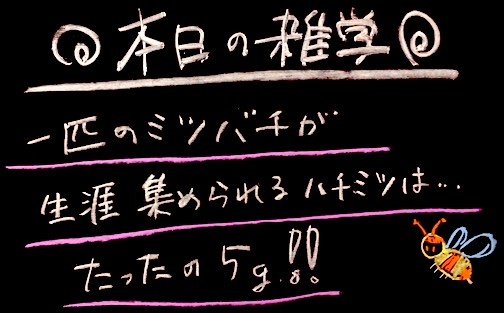 本日の雑学
一匹のミツバチが
生涯 集められるハチミツは…
たったの5g!!